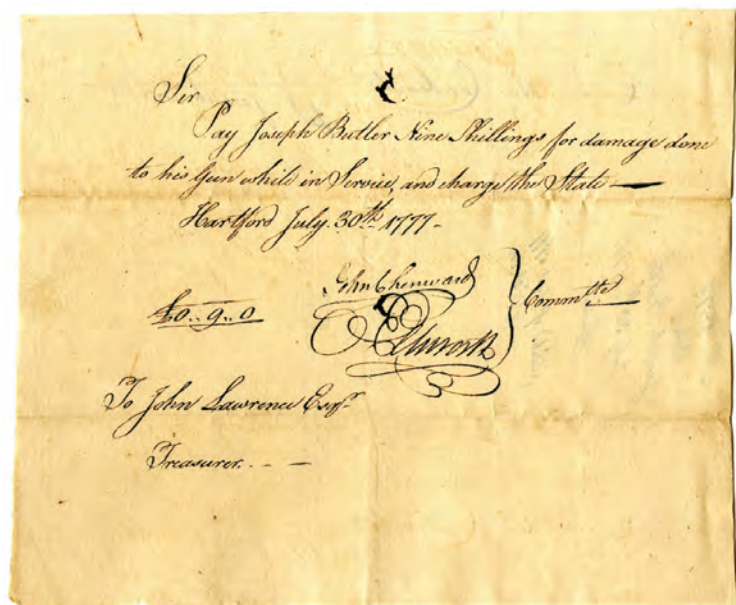 Sir
Pay Joseph Butler Nine Shillings for damage done
to his Gun while in Service, and charge the State —
Hartford July. 30th. 1777 -
John Chenward
£0..9..0
Committe
E Elsworth
To John Lawrence Esqr.
Treasurer. - - —